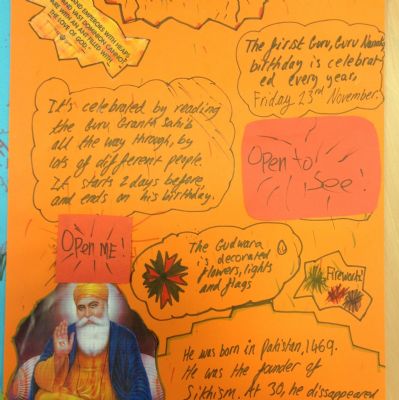 AND EMPERORS WITH HEAPS
AND VAST DOMINION CANNOT
WITH AN ANT FILLED WITH
THE LOVE OF GOD."
The first Guru, Guru Nanak,
birthday is celebrat
ed every year,
Friday 23rd November.
It's celebrated by reading
the Guru Granth Sahib
all the way through, by
lots of different people.
It starts 2 days before
and ends on his birthday.
Open to
See!
Open ME!
The Gudwara
is decorated
flowers, lights
and flags
Fireworks!
He was born in Pakistan, 1469.
He was the founder of
Sikhism. At 30, he dissappeared